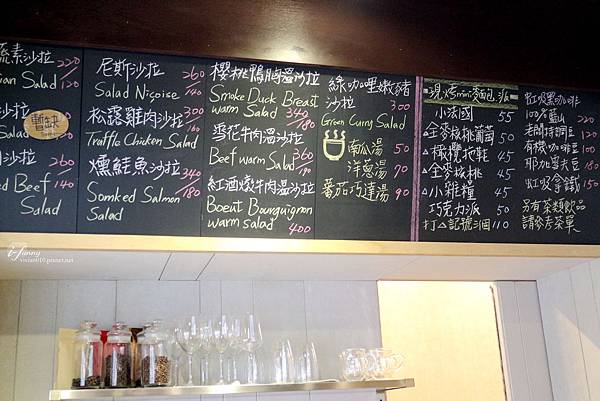 蔬素沙拉 220
ian Salad 120
沙拉
Salad
暫缺
沙拉 260
ed Beef 140
Salad
尼斯沙拉 260
Salad Niçoise 140
松露雞肉沙拉 300
Truffle Chicken Salad 160
燻鮭魚沙拉 340
Somked Salmon 180
Salad
櫻桃鴨胸溫沙拉
Smoke Duck Breast
warm Salad 340
180
菲花牛肉溫沙拉
Beef warm Salad 360
190
紅酒燉牛肉溫沙拉
Boeut Bourguignon
warm salad 400
綠咖哩嫩豬
沙拉 300
Green Curry Salad
南瓜湯 50
洋蔥湯 70
蕃茄巧達湯 90
現烤mini麵包、派
小法國 55
△全麥核桃葡萄 50
△橄欖拖鞋 45
△全麥核桃 45
△小雜糧 45
巧克力派 50
打△記號3個 110
虹吸咖啡
100%藍山
有機咖啡 100
耶加雪夫 180
虹吸拿鐵 150
另有茶類飲品
請參考菜單
vivian0105.pixnet.net